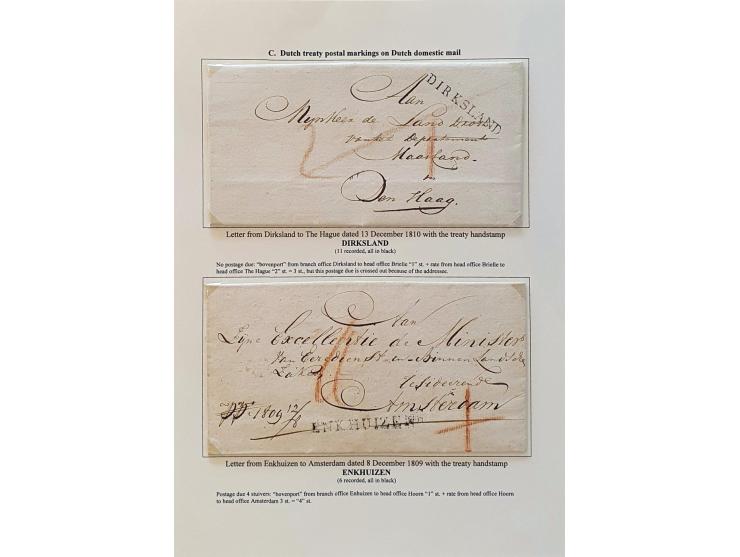 C. Dutch treaty postal markings on Dutch domestic mail
DIRKSLAND
Aan
Mynheer de Land Drost
van het Departement
Maasland.
Den Haag.
Letter from Dirksland to The Hague dated 13 December 1810 with the treaty handstamp
DIRKSLAND
(11 recorded, all in black)
No postage due: "bovenport" from branch office Dirksland to head office Brielle "1" st. + rate from head office Brielle to
head office The Hague "2" st. = 3 st., but this postage due is crossed out because of the addressee.
Aan
Zyne Excellentie de Minister
van Eeredienst en Binnenlandsche
Zaken
Amsterdam
1809 12/8
ENKHUIZEN
Letter from Enkhuizen to Amsterdam dated 8 December 1809 with the treaty handstamp
ENKHUIZEN
(6 recorded, all in black)
Postage due 4 stuivers: "bovenport" from branch office Enhuizen to head office Hoorn "1" st. + rate from head office Hoorn
to head office Amsterdam 3 st. = "4" st.